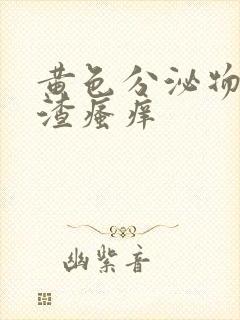 黄色分泌物
渣瘙痒
幽紫音